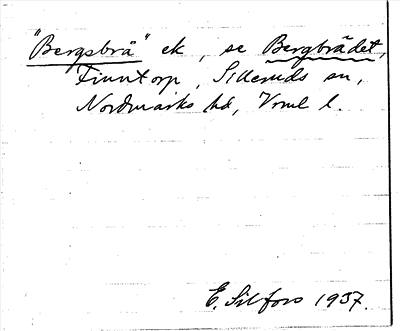 "Bergsbrä" ek, se Bergbrädet,
Finntorp, Silleruds sn,
Nordmarks hd, Vrml l.
E. Silfors 1937.